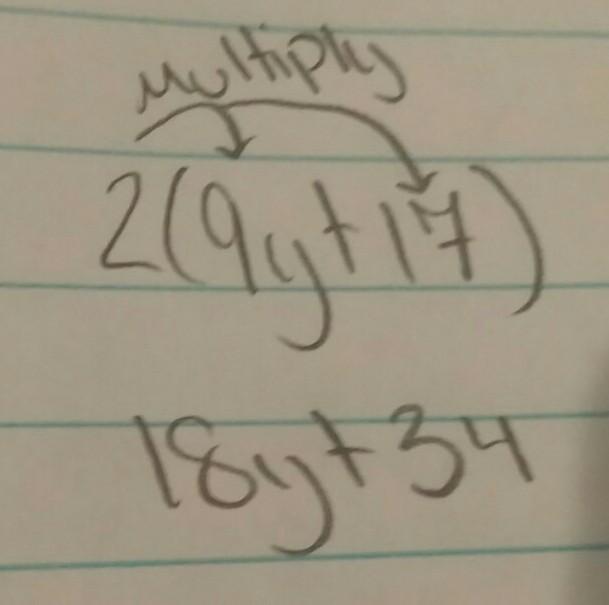 multiply
2(9y+17)
18y+34